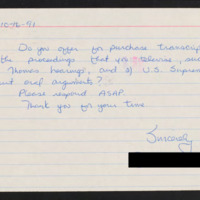 10-16-91
Do you offer for purchase transcripts
the proceedings that you televise, such
Thomas hearings, and 2) U.S. Supreme
oral arguments?
Please respond ASAP.
Thank you for your time.
Sincerely